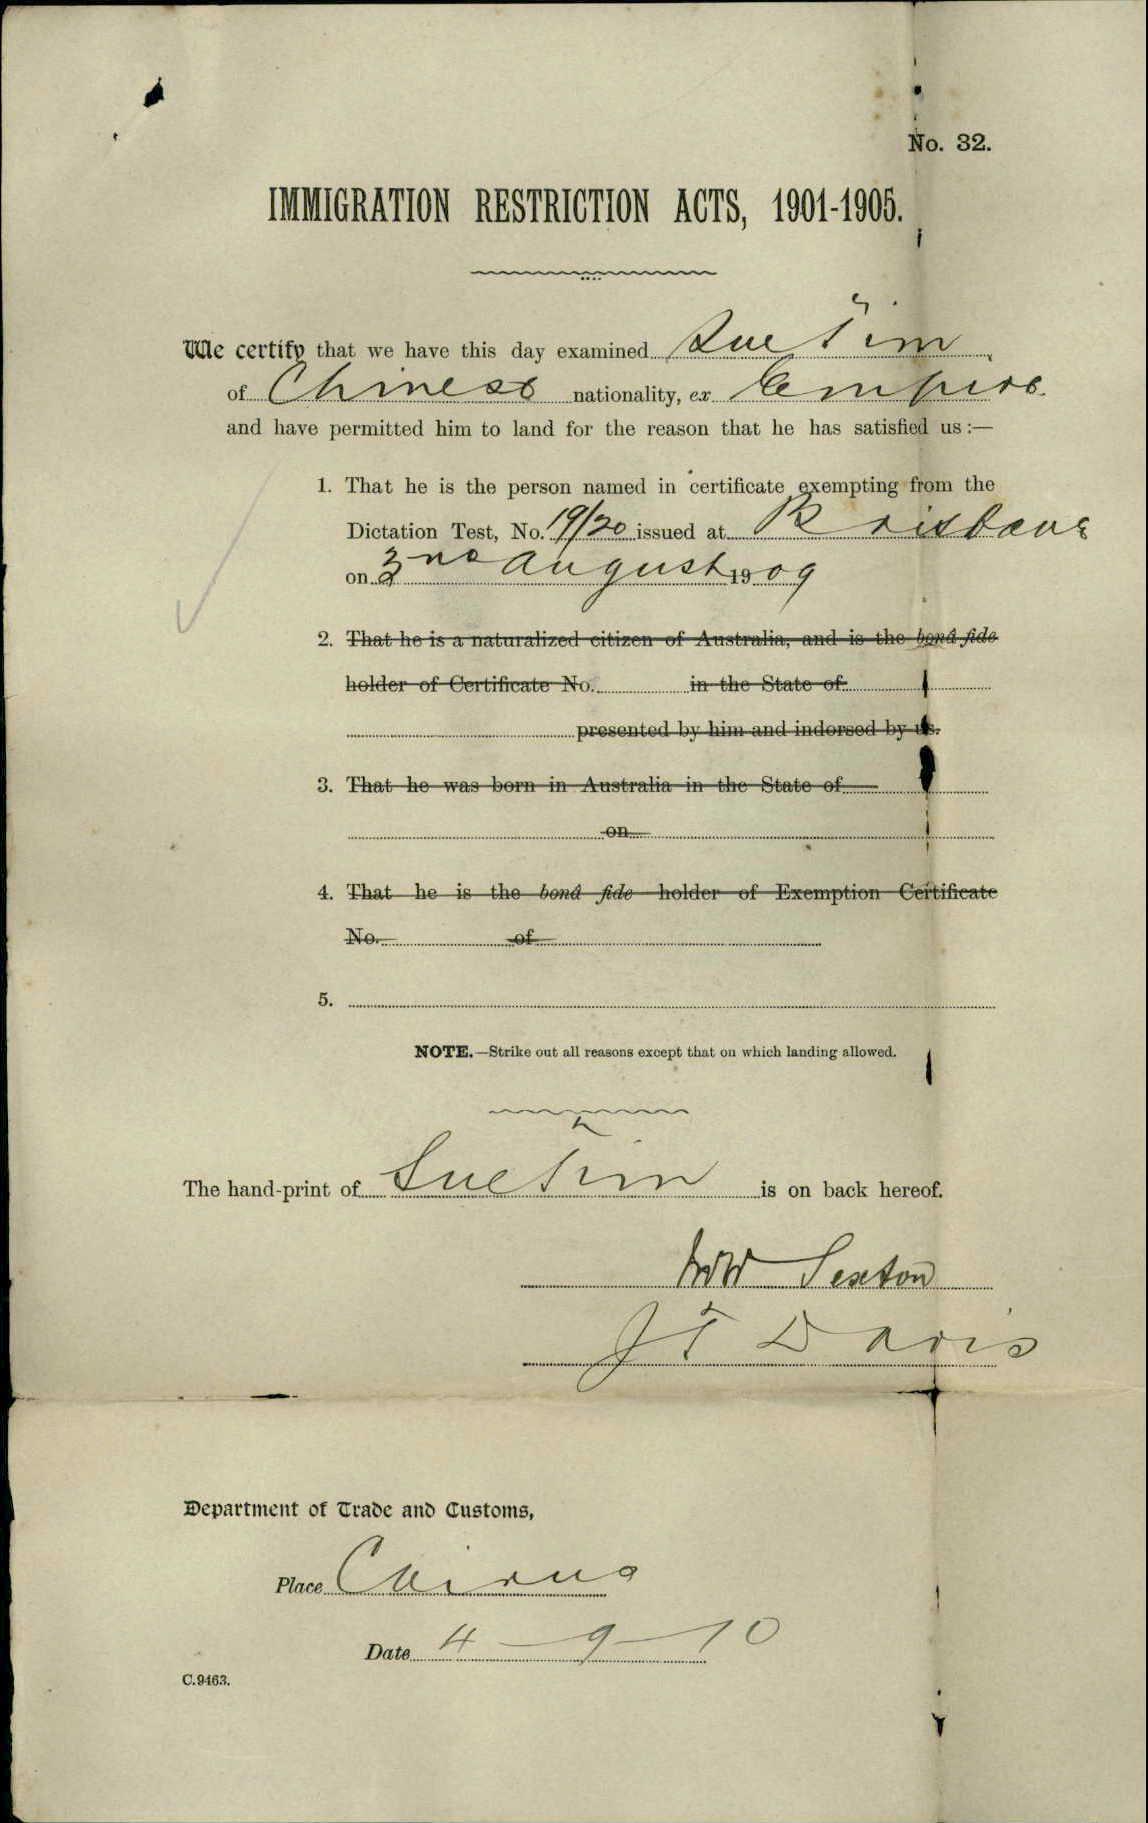 No. 32.
IMMIGRATION RESTRICTION ACTS, 1901-1905.
We certify that we have this day examined Sue Tim
of Chinese nationality, ex Empire
and have permitted him to land for the reason that he has satisfied us :—
1. That he is the person named in certificate exempting from the
Dictation Test, No. 19/20 issued at Brisbane
on 3rd August 1909
2. That he is a naturalized citizen of Australia, and is the bonâ fide
holder of Certificate No. in the State of
presented by him and indorsed by us.
3. That he was born in Australia in the State of
on
4. That he is the bonâ fide holder of Exemption Certificate
No. of
5.
NOTE.—Strike out all reasons except that on which landing allowed.
The hand-print of Sue Tim is on back hereof.
Sexton
J T Davis
Department of Trade and Customs,
Place Cairns
Date 4-9-10
C.9463.